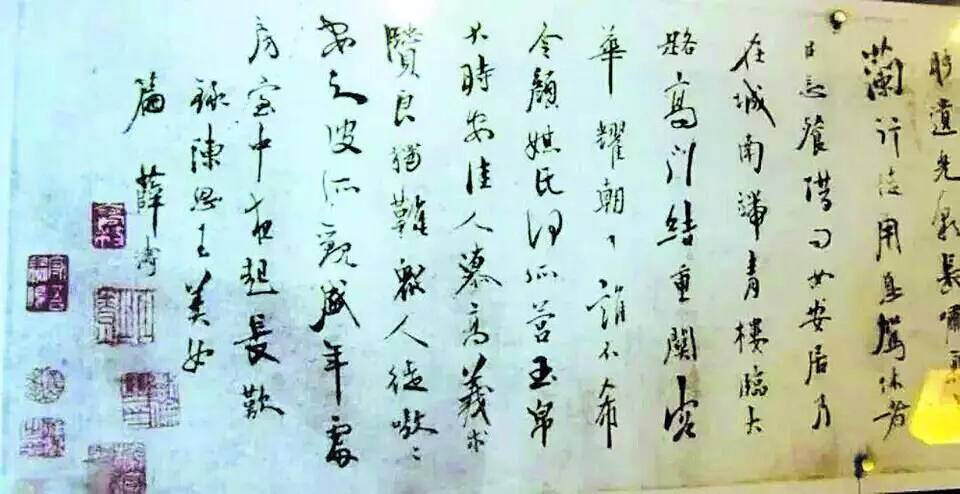 盼遺光采長嘯氣
蘭行徒用息駕休者
以忘餐借問女安居乃
在城南端青樓臨大
路高門結重關容
華耀朝日誰不希
令顏媒氏何所營玉帛
不時安佳人慕高義求
賢良獨難眾人徒嗷々
安知彼所觀盛年處
房室中夜起長歎
錄陳思王美女
篇 薛濤